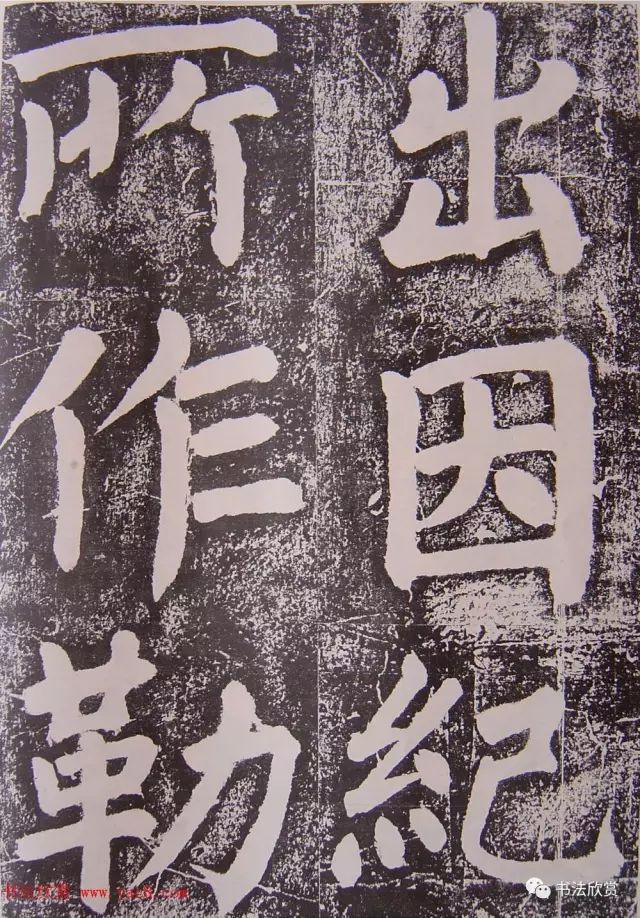 出因紀
所作勒
书法欣赏